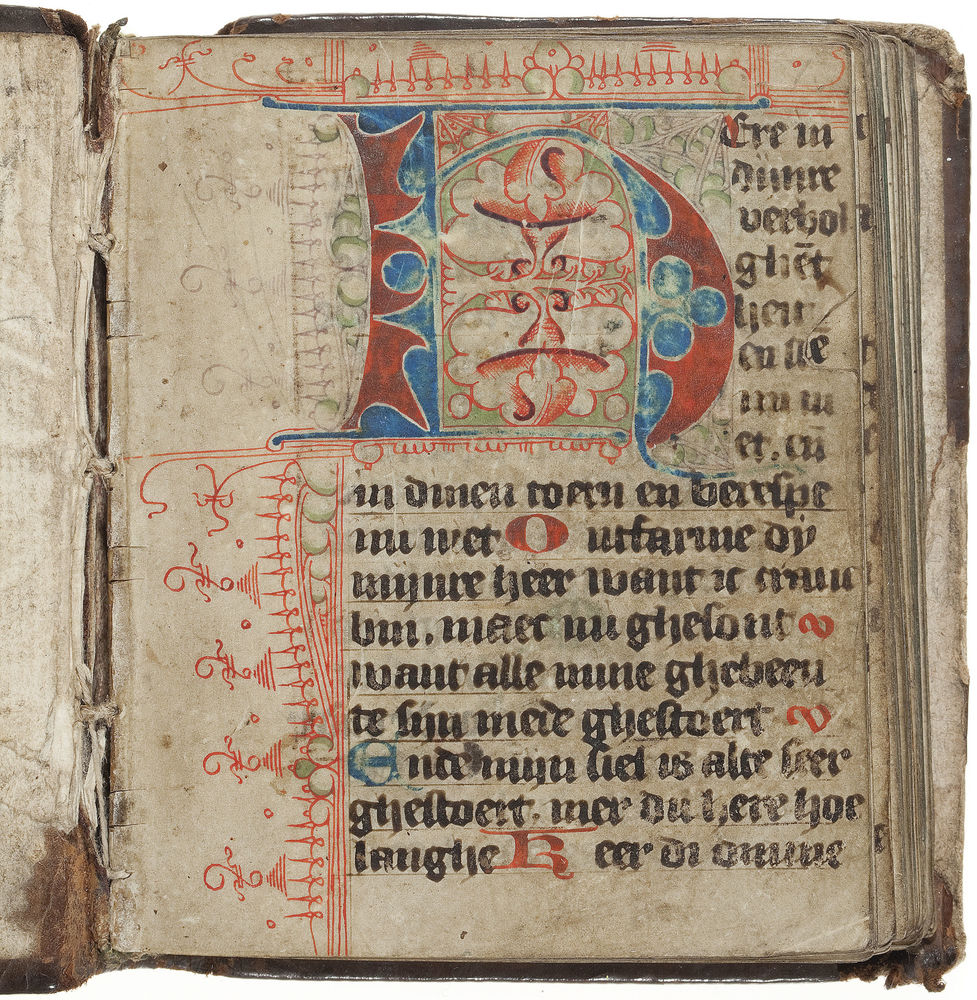 Here in
dijnre
verbol
ghēt
heit
en sce
mi ni
et. eñ
in dinen toern en berespe
mi niet Ontfarme dÿ
mijnre heer want ic cranc
bin. maect mi ghesont
want alle mine ghebeen
te sijn mede ghestoert
Ende mijn siel is alte seer
ghestoert. mer du here hoe
langhe Keer di omme